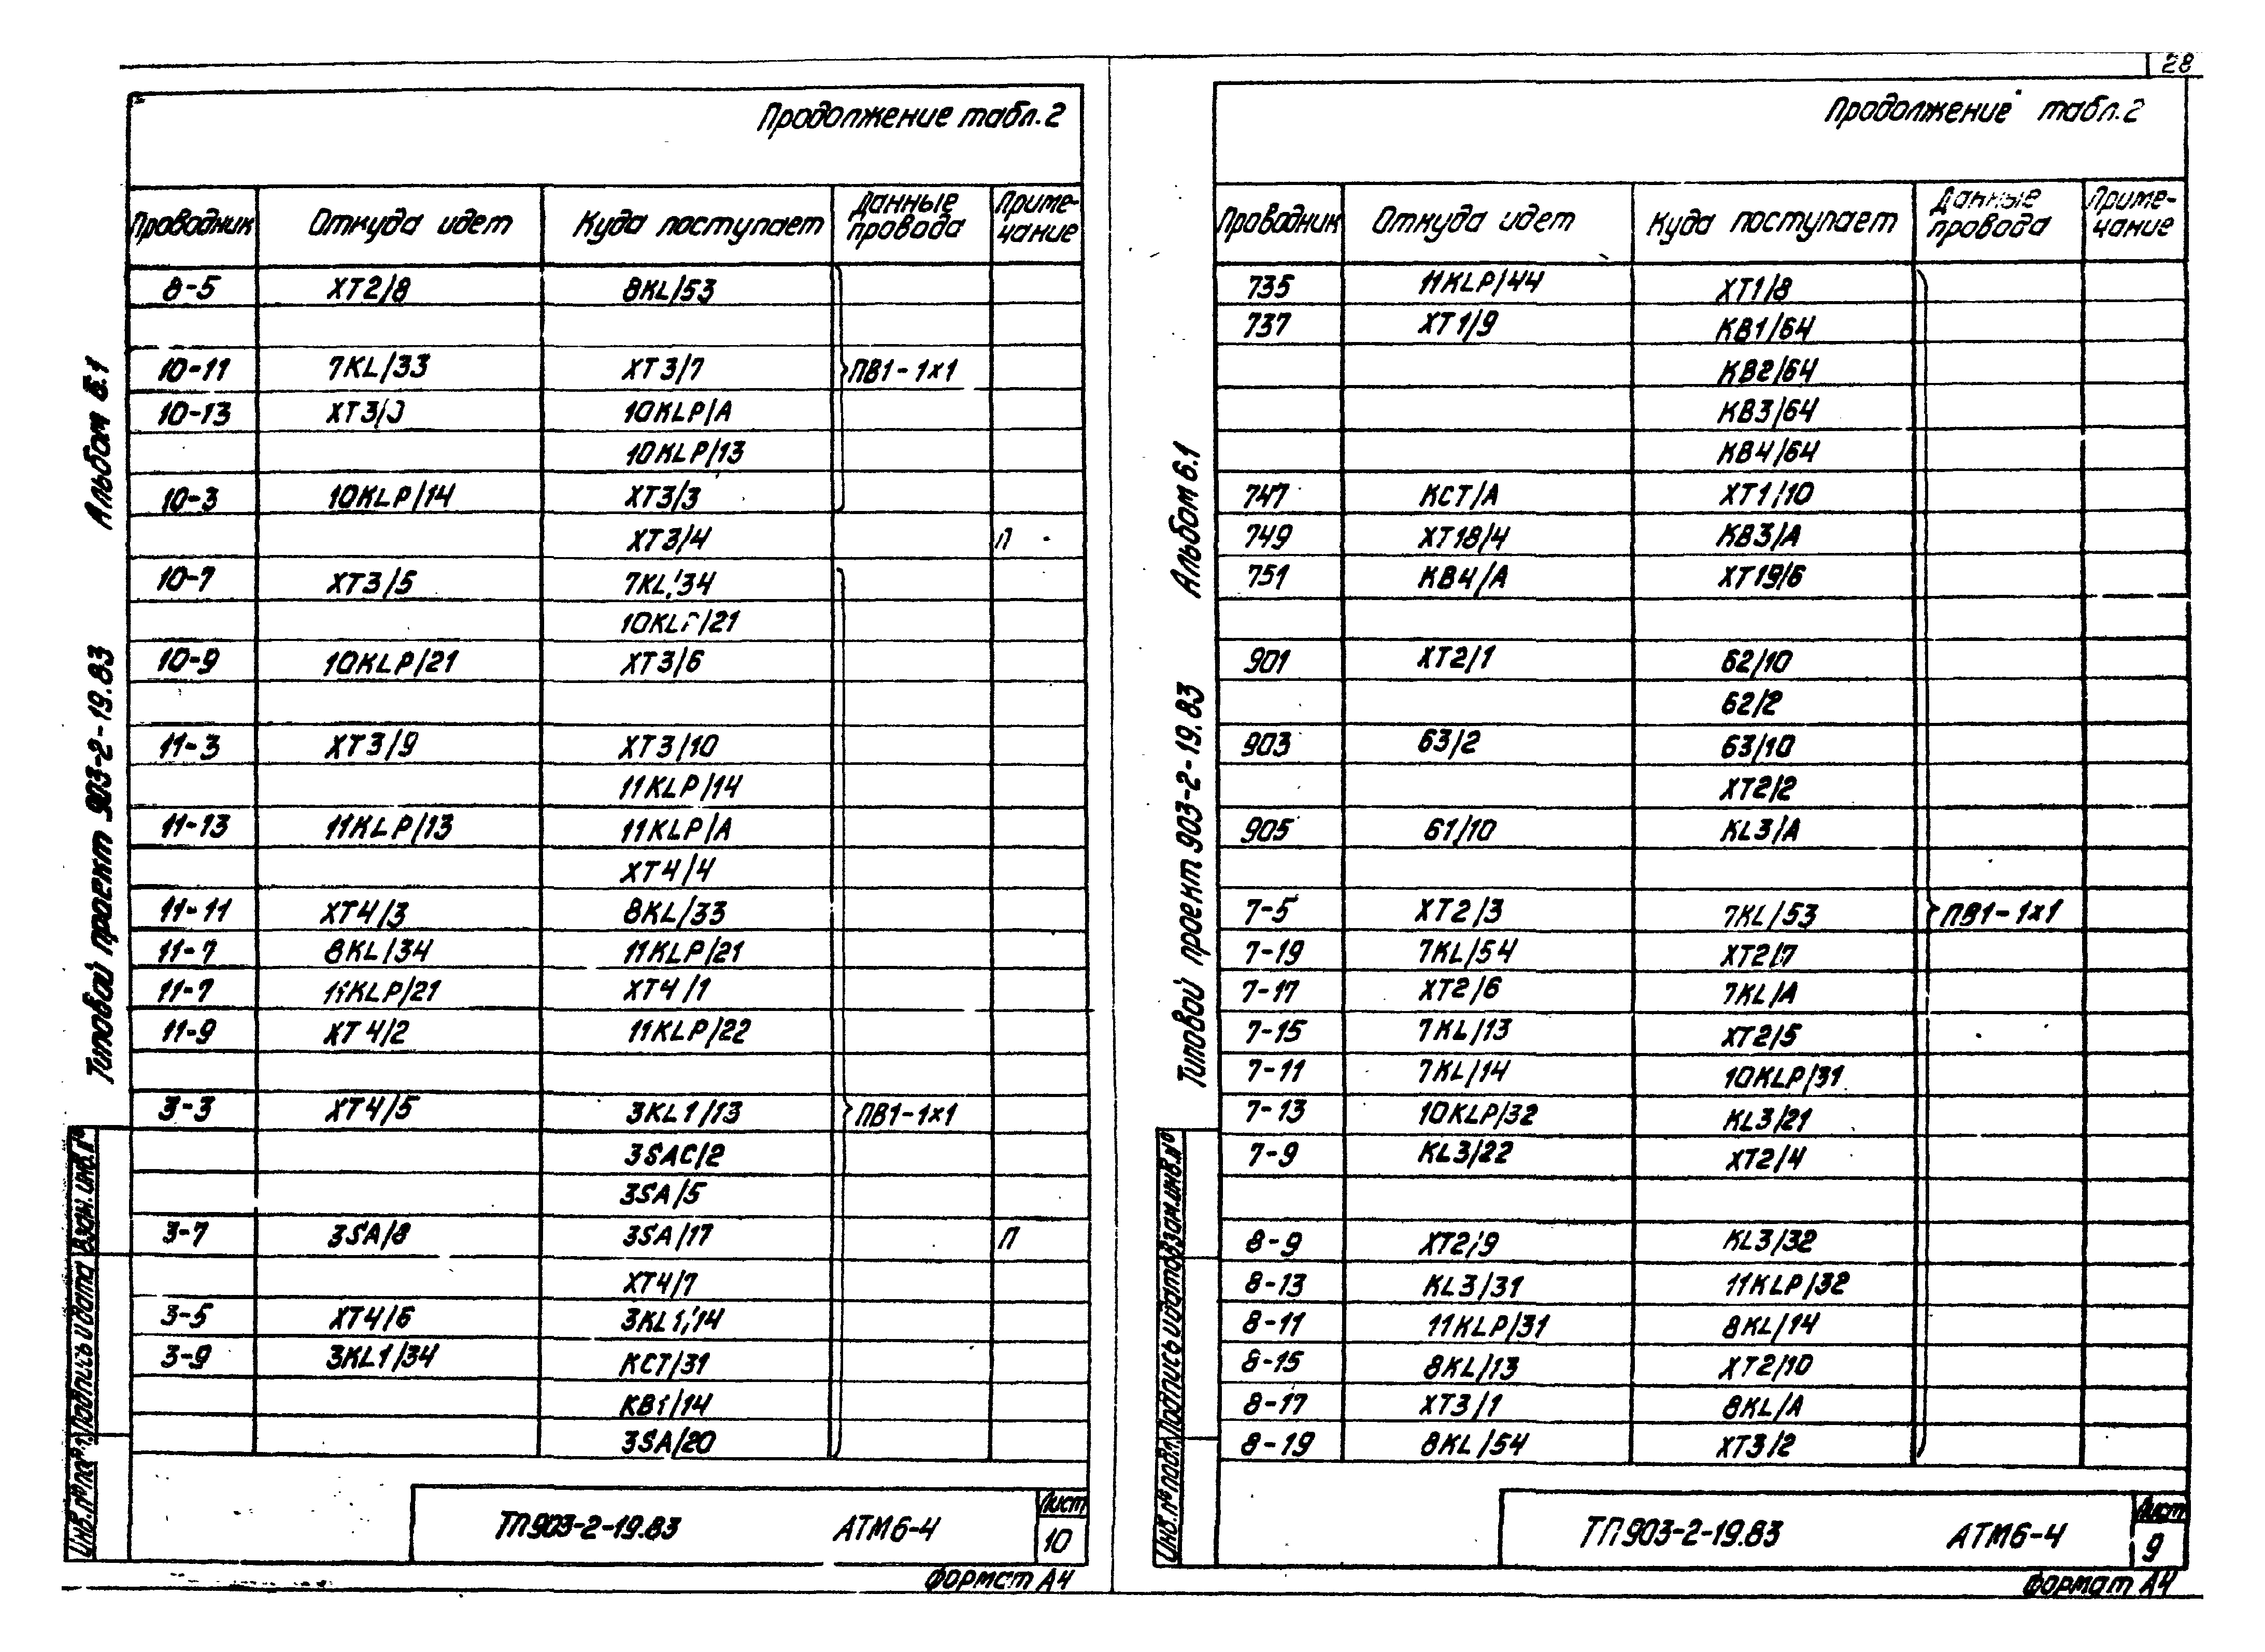 28
Продолжение табл.2
Проводник Откуда идет Куда поступает Данные провода Приме-чание
8-5 XT2/8 8KL/53
10-11 7KL/33 XT3/7 ПВ1-1×1
10-13 10KLP/A
10KLP/13
10-3 10KLP/14 XT3/3
XT3/4 П
10-7 XT3/5 7KL/34
10KLP/21
10-9 10KLP/21 XT3/6
11-3 XT3/9 XT3/10
11KLP/14
11-13 11KLP/13 11KLP/A
XT4/4
11-11 XT4/3 8KL/33
11-7 8KL/34 11KLP/21
11-7 11KLP/21 XT4/1
11-9 XT4/2 11KLP/22
3-3 XT4/5 3KL1/13 ПВ1-1×1
3SAC/2
3SA/5
3-7 3SA/8 3SA/17 П
XT4/7
3-5 XT4/6 3KL1/14
3-9 3KL1/34 КСТ/31
КВ1/14
3SA/20
Альбом 6.1
Типовой проект 903-2-19.83
Взам.инв.№
Подпись и дата
Инв.№ подл.
ТП903-2-19.83 АТМ6-4 Лист 10
Формат А4
Продолжение табл.2
Проводник Откуда идет Куда поступает Данные провода Приме-чание
735 11KLP/44 XT1/8
737 XT1/9 КВ1/64
КВ2/64
КВ3/64
КВ4/64
747 КСТ/А XT1/10
749 XT18/4 КВ3/А
751 КВ4/А XT19/6
901 XT2/1 62/10
62/2
903 63/2 63/10
XT2/2
905 61/10 KL3/A
7-5 XT2/3 7KL/53 ПВ1-1×1
7-19 7KL/54 XT2/7
7-17 XT2/6 7KL/A
7-15 7KL/13 XT2/5
7-11 7KL/14 10KLP/31
7-13 10KLP/32 KL3/21
7-9 KL3/22 XT2/4
8-9 XT2/9 KL3/32
8-13 KL3/31 11KLP/32
8-11 11KLP/31 8KL/14
8-15 8KL/13 XT2/10
8-17 XT3/1 8KL/A
8-19 8KL/54 XT3/2
Альбом 6.1
Типовой проект 903-2-19.83
Взам.инв.№
Подпись и дата
Инв.№ подл.
ТП903-2-19.83 АТМ6-4 Лист 9
Формат А4